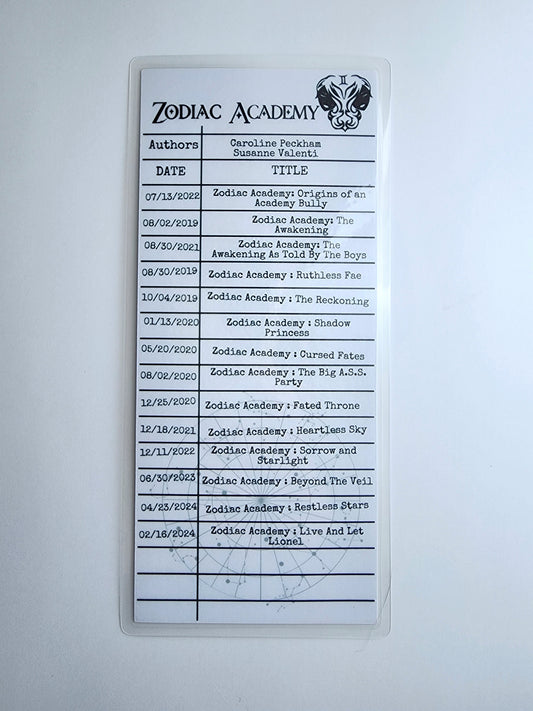 ZODIAC ACADEMY
Authors Caroline Peckham
Susanne Valenti
DATE TITLE
07/13/2022 Zodiac Academy: Origins of an
Academy Bully
08/02/2019 Zodiac Academy: The
Awakening
08/30/2021 Zodiac Academy: The
Awakening As Told By The Boys
08/30/2019 Zodiac Academy : Ruthless Fae
10/04/2019 Zodiac Academy : The Reckoning
01/13/2020 Zodiac Academy : Shadow
Princess
05/20/2020 Zodiac Academy : Cursed Fates
08/02/2020 Zodiac Academy : The Big A.S.S.
Party
12/25/2020 Zodiac Academy : Fated Throne
12/18/2021 Zodiac Academy : Heartless Sky
12/11/2022 Zodiac Academy : Sorrow and
Starlight
06/30/2023 Zodiac Academy : Beyond The Veil
04/23/2024 Zodiac Academy : Restless Stars
02/16/2024 Zodiac Academy : Live And Let
Lionel